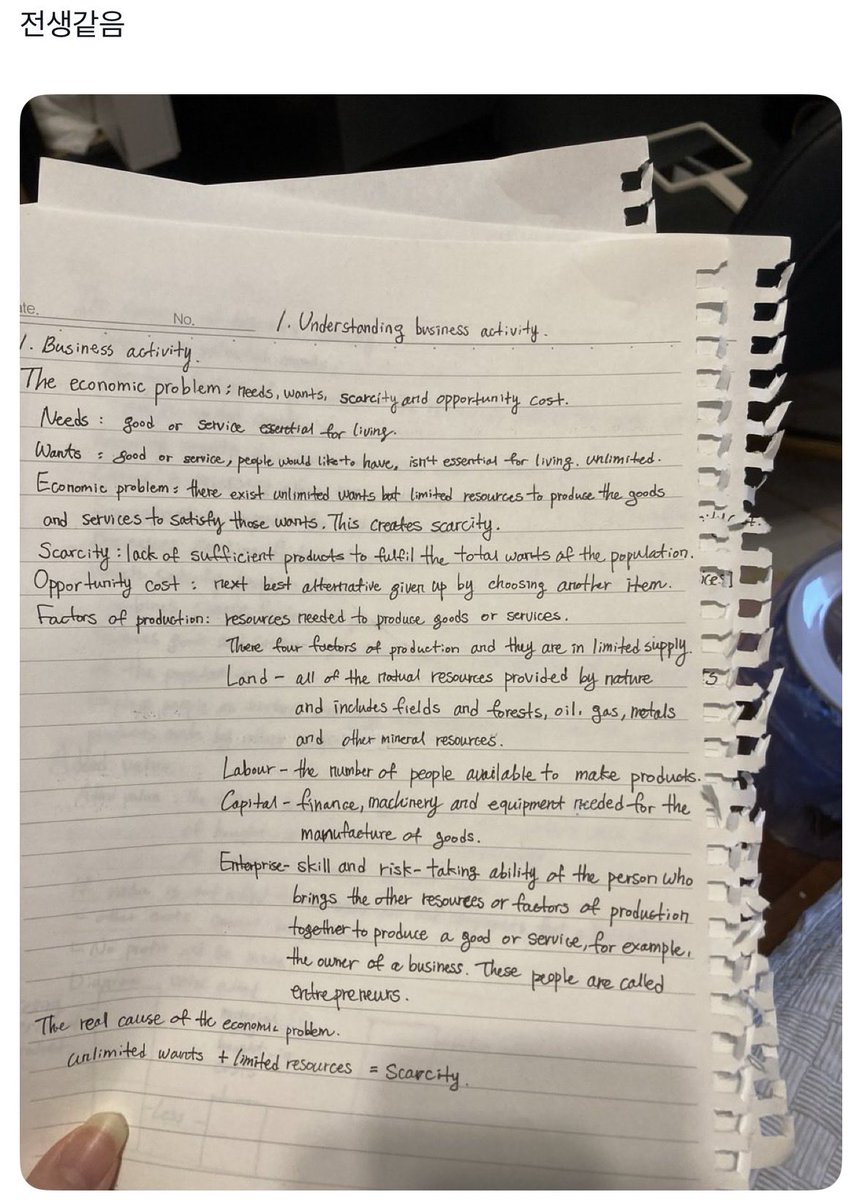 전생같음
ate.
No.
1. Understanding business activity.
1. Business activity.
The economic problem : needs, wants, scarcity and opportunity cost.
Needs : good or service essential for living.
Wants : good or service, people would like to have, isn't essential for living. unlimited.
Economic problem : there exist unlimited wants but limited resources to produce the goods
and services to satisfy those wants. This creates scarcity.
Scarcity : lack of sufficient products to fulfil the total wants of the population.
Opportunity cost : next best alternative given up by choosing another item.
Factors of production : resources needed to produce goods or services.
There four factors of production and they are in limited supply.
Land - all of the natual resources provided by nature
and includes fields and forests, oil, gas, metals
and other mineral resources.
Labour - the number of people available to make products.
Capital - finance, machinery and equipment needed for the
manufacture of goods.
Enterprise - skill and risk-taking ability of the person who
brings the other resources or factors of production
together to produce a good or service, for example,
the owner of a business. These people are called
entrepreneurs.
The real cause of the economic problem.
unlimited wants + limited resources = Scarcity.